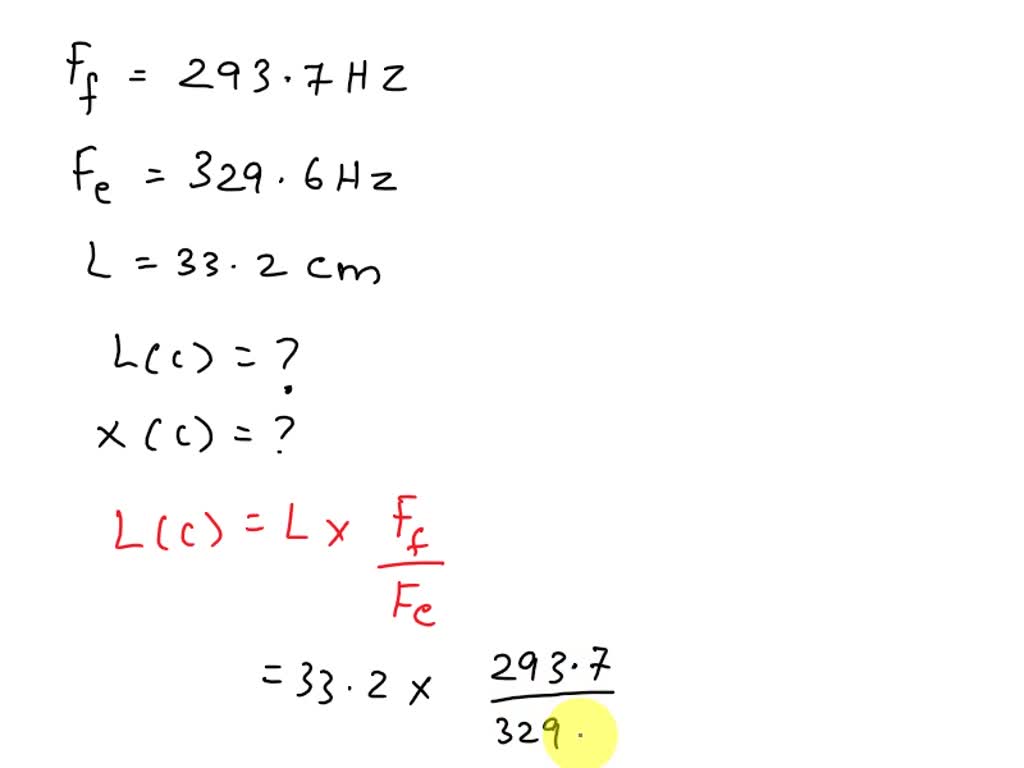 Ff = 293.7 HZ
Fe = 329.6 Hz
L = 33.2 cm
L(c) = ?
x(c) = ?
L(c) = L x Ff/Fe
= 33.2 x 293.7/329.